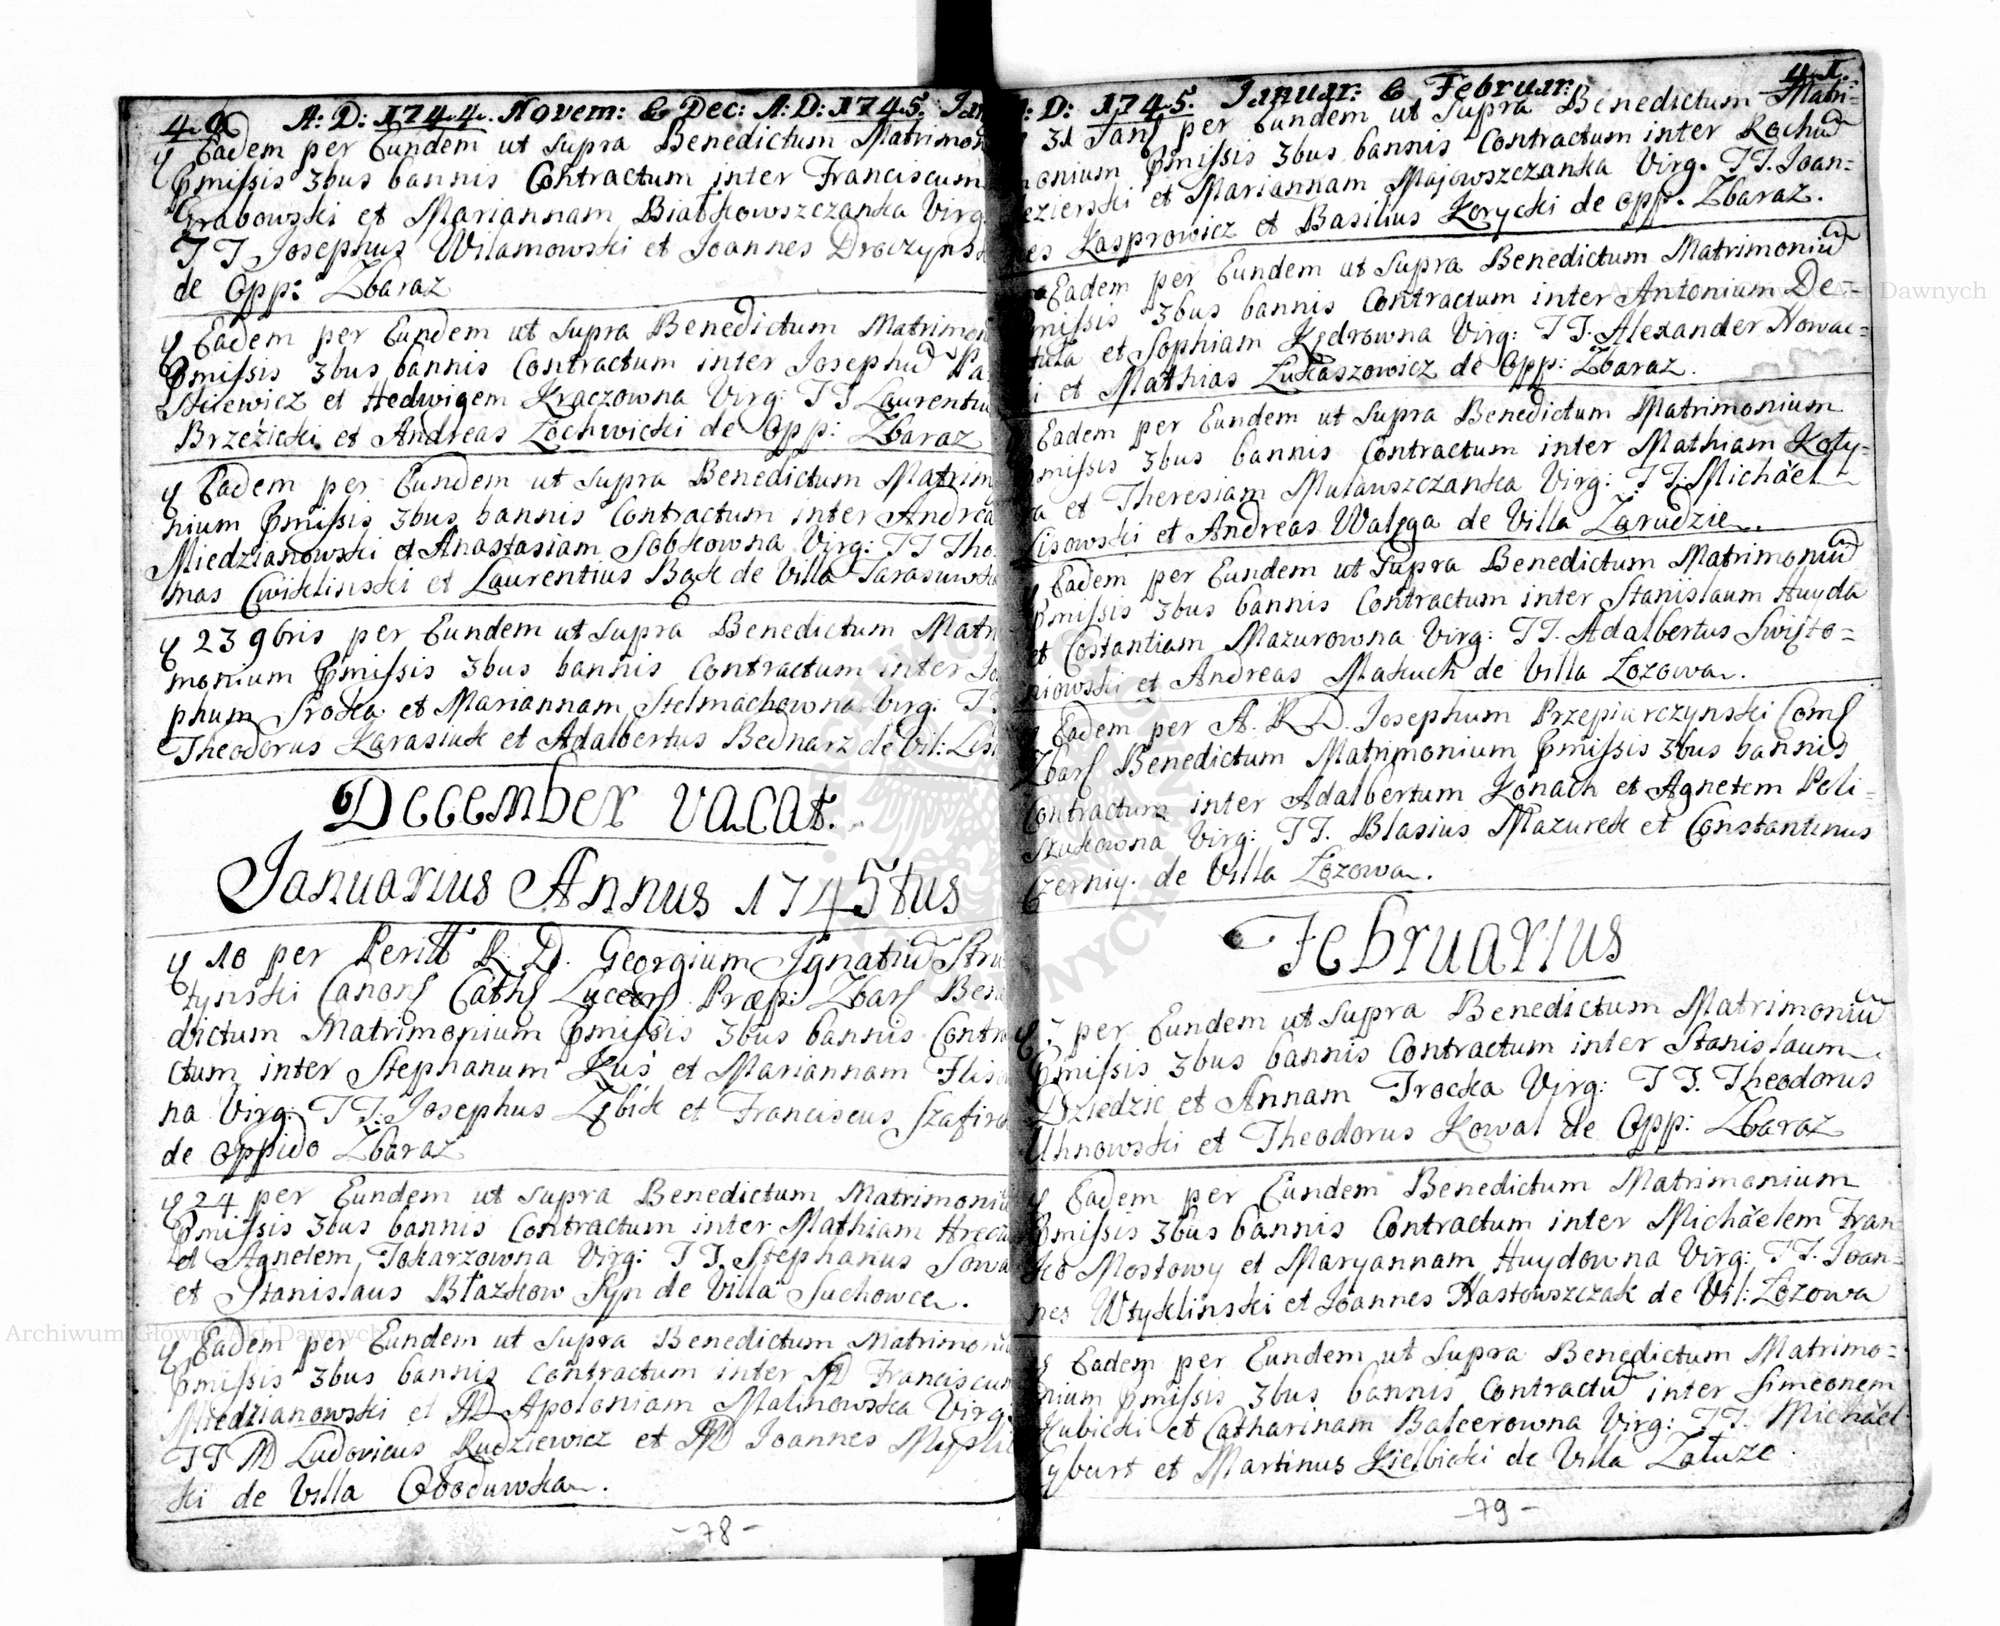 40 A: D: 1744. Novem: & Dec: A: D: 1745. Jan
ɥ Eadem per Eundem ut supra Benedictum Matrimon
Pmissis 3bus bannis Contractum inter Franciscum
Grabowski et Mariannam Białkowszczanka Virg.
TT Josephus Wilamowski et Joannes Droczyns
de Opp: Zbaraz
ɥ Eadem per Eundem ut supra Benedictum Matrimon
Pmissis 3bus bannis Contractum inter Josephu Pa
skiewicz et Hedwigem Kraczowna Virg: TT Laurentiu
Brzezicki et Andreas Zochwicki de Opp: Zbaraz
ɥ Eadem per Eundem ut supra Benedictum Matrim
nium Pmissis 3bus bannis Contractum inter Andrea
Miedzianowski et Anastasiam Sobkowna Virg: TT Tho
mas Cwiklinski et Laurentius Bąk de Villa Tarasuwka
ɥ 23 9bris per Eundem ut supra Benedictum Matri
monium Pmissis 3bus bannis Contractum inter Jo
phum Sroka et Mariannam Stelmachowna Virg: T
Theodorus Karasiuk et Adalbertus Bednarz de Vil: Lesi
December vacat.
Januarius Annus 1745tus
ɥ 10 per Perill R. D. Georgium Ignatiu Stru
tynski Canon Cath Luceor Præp: Zbar Bene
dictum Matrimonium Pmissis 3bus bannis Contra
ctum inter Stephanum Kuś et Mariannam Flisow
na Virg: TT: Josephus Zębik et Franciscus Szafira
de oppido Zbaraz
ɥ 24 per Eundem ut supra Benedictum Matrimoniu
Pmissis 3bus bannis Contractum inter Mathiam Hrecz
et Agnetem Tokarzowna Virg: TT. Stephanus Sowa
et Stanislaus Błazkow Syn de Villa Suchowce.
ɥ Eadem per Eundem ut supra Benedictum Matrimoniu
Pmissis 3bus bannis Contractum inter MD Franciscum
Miedzianowski et MD Apoloniam Malinowska Virg:
TT MD Ludovicus Rudziewicz et MD Joannes Myśli
ki de Villa Oboduwka.
- 78 -
A: D: 1745. Januar: & Februar: 41.
31 Jan per Eundem ut supra Benedictum Matri=
monium Pmissis 3bus bannis Contractum inter Rochu
ezierski et Mariannam Majowszczanka Virg. TT. Joan=
nes Kasprowicz et Basilius Korycki de opp. Zbaraz.
Eadem per Eundem ut supra Benedictum Matrimoniu
Pmissis 3bus bannis Contractum inter Antonium De=
kuła et Sophiam Kędrowna Virg: TT. Alexander Nowac=
ki et Mathias Łukaszowicz de Opp: Zbaraz.
Eadem per Eundem ut supra Benedictum Matrimonium
Pmissis 3bus bannis Contractum inter Mathiam Koty=
ra et Theresiam Mulauszczanka Virg: TT: Michäel
Lisowski et Andreas Waljga de Villa Zarudzie.
ɥ Eadem per Eundem ut Supra Benedictum Matrimoniu
Pmissis 3bus bannis Contractum inter Stanislaum Huyda
et Costantiam Mazurowna Virg: TT. Adalbertus Swisto=
niowski et Andreas Makuch de Villa Łozowa.
ɥ Eadem per A. R. D. Josephum Przepiurczynski Com
Zbar Benedictum Matrimonium Pmissis 3bus bannis
Contractum inter Adalbertum Konach et Agnetem Peli=
szukowna Virg: TT. Blasius Mazurek et Constantinus
Czerniy. de Villa Łozowa.
Februarius
ɥ 7 per Eundem ut supra Benedictum Matrimoniu
Pmissis 3bus bannis Contractum inter Stanislaum
Dziedzic et Annam Trocka Virg: TT. Theodorus
Uhnowski et Theodorus Kowal de Opp: Zbaraz
ɥ Eadem per Eundem Benedictum Matrimonium
Pmissis 3bus bannis Contractum inter Michäelem Fran=
ko Mostowy et Maryannam Huydowna Virg: TT. Joan=
nes Wtyklinski et Joannes Hastowszczak de Vil: Łozowa
ɥ Eadem per Eundem ut supra Benedictum Matrimo=
nium Pmissis 3bus bannis Contractu inter Simeonem
Kubicki et Catharinam Balcerowna Virg: TT. Michäel
Cyburt et Martinus Kiełbicki de Villa Załuze.
- 79 -
Archiwum Główne Akt Dawnych